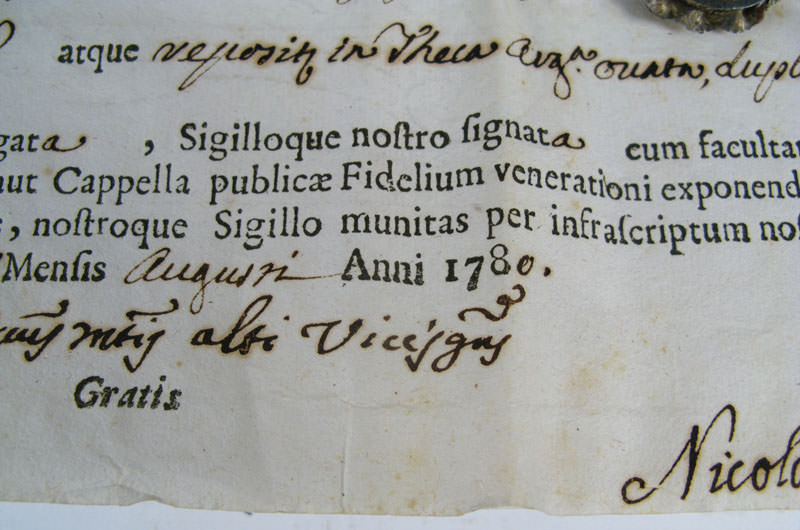 atque reposit in Theca Arg.ª ouata, dupl
gata , Sigilloque noſtro ſignata cum facultat
aut Cappella publicæ Fidelium venerationi exponend
, noſtroque Sigillo munitas per infraſcriptum noſ
Menſis Augusti Anni 1780.
Gratis
Nicol